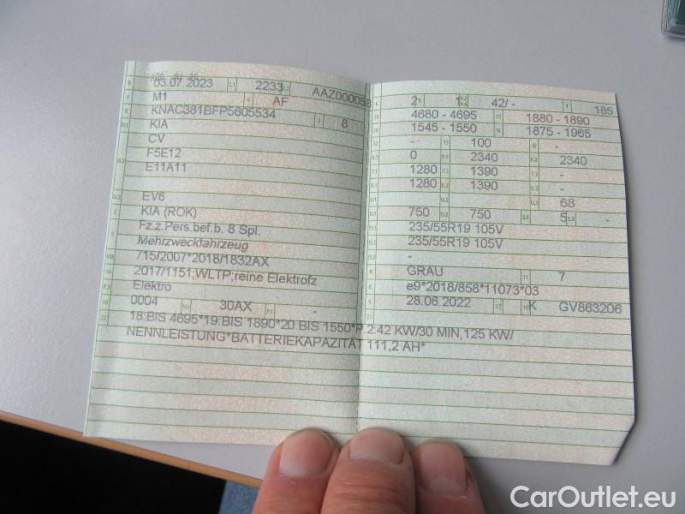 03.07.2023 2233 AAZ000098
M1 AF
KNAC381BFP5605534 8
KIA
CV
F5E12
E11A11
EV6
KIA (ROK)
Fz.z.Pers.bef.b. 8 Spl.
Mehrzweckfahrzeug
715/2007*2018/1832AX
2017/1151;WLTP;reine Elektrofz
Elektro
0004 30AX -
2 1 42/- 185
4680 - 4695 1880 - 1890
1545 - 1550 1875 - 1965
- 100 -
0 2340 2340
1280 1390 -
1280 1390 -
68
750 750 5 -
235/55R19 105V
235/55R19 105V
-
GRAU 7
e9*2018/858*11073*03
28.06.2022 K GV863206
18:BIS 4695*19:BIS 1890*20 BIS 1550*P.2:42 KW/30 MIN,125 KW/
NENNLEISTUNG*BATTERIEKAPAZITÄT 111,2 AH*
CarOutlet.eu